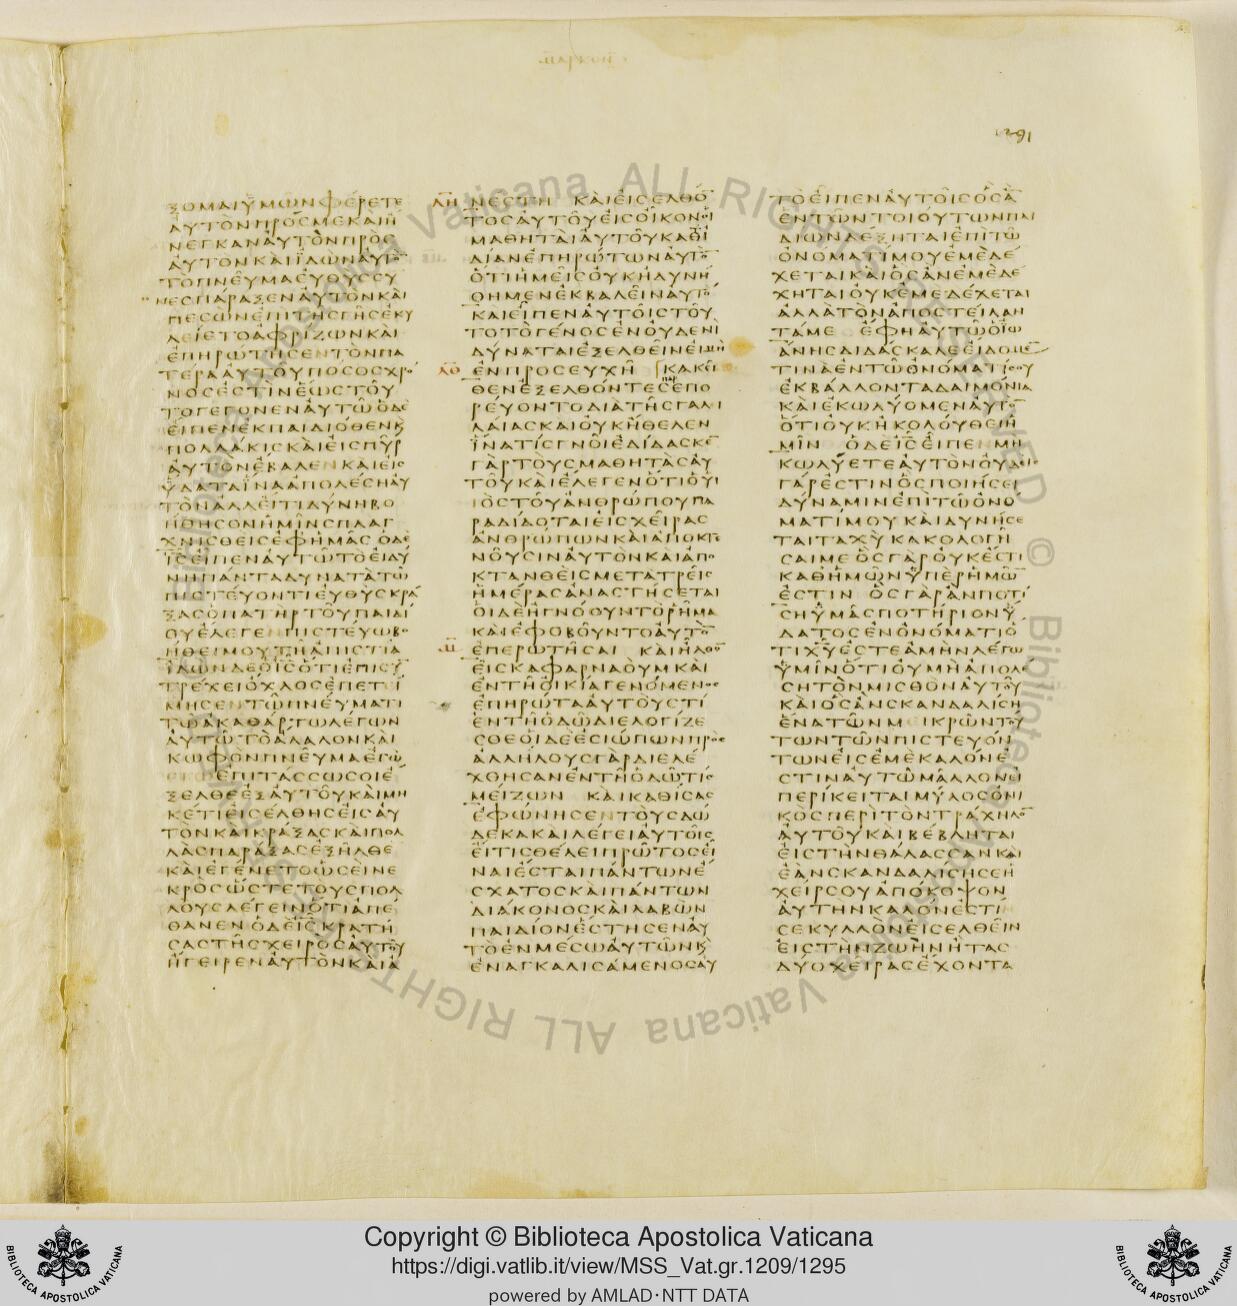 1291
ΖΟΜΑΙΥΜΩΝΦΕΡΕΤΕ
ΑΥΤΟΝΠΡΟΣΜΕΚΑΙΗ
ΝΕΓΚΑΝΑΥΤΟΝΠΡΟΣ
ΑΥΤΟΝΚΑΙΙΔΩΝΑΥΤΟ̄
ΤΟΠΝΕΥΜΑΕΥΘΥΣΣΥ
ΝΕΣΠΑΡΑΞΕΝΑΥΤΟΝΚΑΙ
ΠΕΣΩΝΕΠΙΤΗΣΓΗΣΕΚΥ
ΛΙΕΤΟΑΦΡΙΖΩΝΚΑΙ
ΕΠΗΡΩΤΗΣΕΝΤΟΝΠΑ
ΤΕΡΑΑΥΤΟΥΠΟΣΟΣΧΡΟ
ΝΟΣΕΣΤΙΝΕΩΣΤΟΥ
ΤΟΓΕΓΟΝΕΝΑΥΤΩΟΔΕ
ΕΙΠΕΝΕΚΠΑΙΔΙΟΘΕΝΚ
ΠΟΛΛΑΚΙΣΚΑΙΕΙΣΠΥΡ
ΑΥΤΟΝΕΒΑΛΕΝΚΑΙΕΙΣ
ΥΔΑΤΑΙΝΑΑΠΟΛΕΣΗΑΥ
ΤΟΝΑΛΛΕΙΤΙΔΥΝΗΒΟ
ΗΘΗΣΟΝΗΜΙΝΣΠΛΑΓ
ΧΝΙΣΘΕΙΣΕΦΗΜΑΣΟΔΕ
Ι̅Σ̅ΕΙΠΕΝΑΥΤΩΤΟΕΙΔΥ
ΝΗΠΑΝΤΑΔΥΝΑΤΑΤΩ
ΠΙΣΤΕΥΟΝΤΙΕΥΘΥΣΚΡΑ
ΞΑΣΟΠΑΤΗΡΤΟΥΠΑΙΔΙ
ΟΥΕΛΕΓΕ ΠΙΣΤΕΥΩΒΟ
ΗΘΕΙΜΟΥΤΗΑΠΙΣΤΙΑ
ΙΔΩΝΔΕΟΙ̅Σ̅ΟΤΙΕΠΙΣῩ
ΤΡΕΧΕΙΟΧΛΟΣΕΠΕΤΕΙ
ΜΗΣΕΝΤΩΠΝΕΥΜΑΤΙ
ΤΩΑΚΑΘΑΡΤΩΛΕΓΩΝ
ΑΥΤΩΤΟΑΛΑΛΟΝΚΑΙ
ΚΩΦΟΝΠΝΕΥΜΑΕΓΩ
ΕΠΙΤΑΣΣΩΣΟΙΕ
ΞΕΛΘΕΕΞΑΥΤΟΥΚΑΙΜΗ
ΚΕΤΙΕΙΣΕΛΘΗΣΕΙΣΑΥ
ΤΟΝΚΑΙΚΡΑΞΑΣΚΑΙΠΟΛ
ΛΑΣΠΑΡΑΞΑΣΕΞΗΛΘΕ
ΚΑΙΕΓΕΝΕΤΟΩΣΕΙΝΕ
ΚΡΟΣΩΣΤΕΤΟΥΣΠΟΛ
ΛΟΥΣΛΕΓΕΙΝΟΤΙΑΠΕ
ΘΑΝΕΝΟΔΕΙ̅Σ̅ΚΡΑΤΗ
ΣΑΣΤΗΣΧΕΙΡΟΣΑΥΤΟΥ
ΗΓΕΙΡΕΝΑΥΤΟΝΚΑΙΑ
ΛΗ ΝΕΣΤΗ ΚΑΙΕΙΣΕΛΘΟ̄
ΤΟΣΑΥΤΟΥΕΙΣΟΙΚΟΝΟΙ
ΜΑΘΗΤΑΙΑΥΤΟΥΚΑΘΙ
ΔΙΑΝΕΠΗΡΩΤΩΝΑΥΤΟ̄
ΟΤΙΗΜΕΙΣΟΥΚΗΔΥΝΗ
ΘΗΜΕΝΕΚΒΑΛΕΙΝΑΥΤΟ
ΚΑΙΕΙΠΕΝΑΥΤΟΙΣΤΟΥ
ΤΟΤΟΓΕΝΟΣΕΝΟΥΔΕΝΙ
ΔΥΝΑΤΑΙΕΞΕΛΘΕΙΝΕΙΜΗ
ΛΘ ΕΝΠΡΟΣΕΥΧΗ ΚΑΚΕΙ
ΘΕΝΕΞΕΛΘΟΝΤΕΣΕΠΟ
ΡΕΥΟΝΤΟΔΙΑΤΗΣΓΑΛΙ
ΛΑΙΑΣΚΑΙΟΥΚΗΘΕΛΕΝ
ΙΝΑΤΙΣΓΝΟΙΕΔΙΔΑΣΚΕ
ΓΑΡΤΟΥΣΜΑΘΗΤΑΣΑΥ
ΤΟΥΚΑΙΕΛΕΓΕΝΟΤΙΟΥΙ
ΟΣΤΟΥΑΝΘΡΩΠΟΥΠΑ
ΡΑΔΙΔΟΤΑΙΕΙΣΧΕΙΡΑΣ
ΑΝΘΡΩΠΩΝΚΑΙΑΠΟΚΤΕ
ΝΟΥΣΙΝΑΥΤΟΝΚΑΙΑΠΟ
ΚΤΑΝΘΕΙΣΜΕΤΑΤΡΕΙΣ
ΗΜΕΡΑΣΑΝΑΣΤΗΣΕΤΑΙ
ΟΙΔΕΗΓΝΟΟΥΝΤΟΡΗΜΑ
ΚΑΙΕΦΟΒΟΥΝΤΟΑΥΤΟ̄
Μ ΕΠΕΡΩΤΗΣΑΙ ΚΑΙΗΛΘΟ̄
ΕΙΣΚΑΦΑΡΝΑΟΥΜΚΑΙ
ΕΝΤΗΟΙΚΙΑΓΕΝΟΜΕΝΟΣ
ΕΠΗΡΩΤΑΑΥΤΟΥΣΤΙ
ΕΝΤΗΟΔΩΔΙΕΛΟΓΙΖΕ
ΣΘΕΟΙΔΕΕΣΙΩΠΩΝΠΡΟΣ
ΑΛΛΗΛΟΥΣΓΑΡΔΙΕΛΕ
ΧΘΗΣΑΝΕΝΤΗΟΔΩΤΙΣ
ΜΕΙΖΩΝ ΚΑΙΚΑΘΙΣΑΣ
ΕΦΩΝΗΣΕΝΤΟΥΣΔΩ
ΔΕΚΑΚΑΙΛΕΓΕΙΑΥΤΟΙΣ
ΕΙΤΙΣΘΕΛΕΙΠΡΩΤΟΣΕΙ
ΝΑΙΕΣΤΑΙΠΑΝΤΩΝΕ
ΣΧΑΤΟΣΚΑΙΠΑΝΤΩΝ
ΔΙΑΚΟΝΟΣΚΑΙΛΑΒΩΝ
ΠΑΙΔΙΟΝΕΣΤΗΣΕΝΑΥ
ΤΟΕΝΜΕΣΩΑΥΤΩΝΚ
ΕΝΑΓΚΑΛΙΣΑΜΕΝΟΣΑΥ
ΤΟΕΙΠΕΝΑΥΤΟΙΣΟΣᾹ
ΕΝΤΩΝΤΟΙΟΥΤΩΝΠΑΙ
ΔΙΩΝΔΕΞΗΤΑΙΕΠΙΤΩ
ΟΝΟΜΑΤΙΜΟΥΕΜΕΔΕ
ΧΕΤΑΙΚΑΙΟΣΑΝΕΜΕΔΕ
ΧΗΤΑΙΟΥΚΕΜΕΔΕΧΕΤΑΙ
ΑΛΛΑΤΟΝΑΠΟΣΤΕΙΛΑΝ
ΤΑΜΕ ΕΦΗΑΥΤΩΟΙΩ
ΑΝΗΣΔΙΔΑΣΚΑΛΕΕΙΔΟΜΕ̄
ΤΙΝΑΕΝΤΩΟΝΟΜΑΤΙΣΟΥ
ΕΚΒΑΛΛΟΝΤΑΔΑΙΜΟΝΙΑ
ΚΑΙΕΚΩΛΥΟΜΕΝΑΥΤΟ̄
ΟΤΙΟΥΚΗΚΟΛΟΥΘΕΙΗ
ΜΙΝ ΟΔΕΙ̅Σ̅ΕΙΠΕΝΜΗ
ΚΩΛΥΕΤΕΑΥΤΟΝΟΥΔΕΙΣ
ΓΑΡΕΣΤΙΝΟΣΠΟΙΗΣΕΙ
ΔΥΝΑΜΙΝΕΠΙΤΩΟΝΟ
ΜΑΤΙΜΟΥΚΑΙΔΥΝΗΣΕ
ΤΑΙΤΑΧΥΚΑΚΟΛΟΓΗ
ΣΑΙΜΕΟΣΓΑΡΟΥΚΕΣΤΙ
ΚΑΘΗΜΩΝΥΠΕΡΗΜΩ̄
ΕΣΤΙΝ ΟΣΓΑΡΑΝΠΟΤΙ
ΣΗΥΜΑΣΠΟΤΗΡΙΟΝΥ
ΔΑΤΟΣΕΝΟΝΟΜΑΤΙΟ
ΤΙΧ̅Υ̅ΕΣΤΕΑΜΗΝΛΕΓΩ
ΥΜΙΝΟΤΙΟΥΜΗΑΠΟΛΕ
ΣΗΤΟΝΜΙΣΘΟΝΑΥΤΟΥ
ΚΑΙΟΣΑΝΣΚΑΝΔΑΛΙΣΗ
ΕΝΑΤΩΝΜΕΙΚΡΩΝΤΟΥ
ΤΩΝΤΩΝΠΙΣΤΕΥΟΝ
ΤΩΝΕΙΣΕΜΕΚΑΛΟΝΕ
ΣΤΙΝΑΥΤΩΜΑΛΛΟΝΕΙ
ΠΕΡΙΚΕΙΤΑΙΜΥΛΟΣΟΝΙ
ΚΟΣΠΕΡΙΤΟΝΤΡΑΧΗΛΟ̄
ΑΥΤΟΥΚΑΙΒΕΒΛΗΤΑΙ
ΕΙΣΤΗΝΘΑΛΑΣΣΑΝΚΑΙ
ΕΑΝΣΚΑΝΔΑΛΙΣΗΣΕΗ
ΧΕΙΡΣΟΥΑΠΟΚΟΨΟΝ
ΑΥΤΗΝΚΑΛΟΝΕΣΤΙ
ΣΕΚΥΛΛΟΝΕΙΣΕΛΘΕΙΝ
ΕΙΣΤΗΝΖΩΗΝΗΤΑΣ
ΔΥΟΧΕΙΡΑΣΕΧΟΝΤΑ
Copyright © Biblioteca Apostolica Vaticana
https://digi.vatlib.it/view/MSS_Vat.gr.1209/1295
powered by AMLAD·NTT DATA
BIBLIOTECA APOSTOLICA VATICANA
BIBLIOTECA APOSTOLICA VATICANA